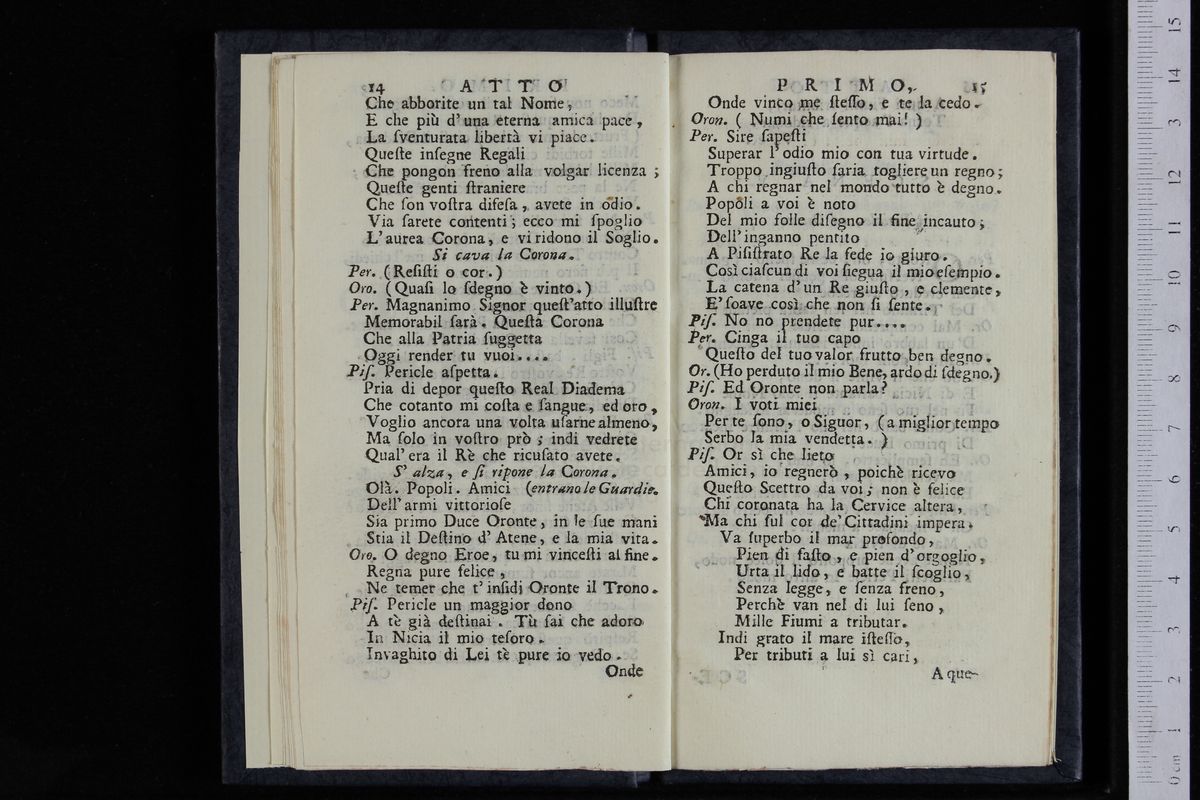 14 ATTO
Che abborite un tal Nome,
E che più d'una eterna amica pace,
La ſventurata libertà vi piace.
Queſte inſegne Regali
Che pongon freno alla volgar licenza;
Queſte genti ſtraniere
Che ſon voſtra difeſa, avete in odio.
Via ſarete contenti; ecco mi ſpoglio
L'aurea Corona, e vi ridono il Soglio.
Si cava la Corona.
Per. (Reſiſti o cor.)
Oro. (Quaſi lo ſdegno è vinto.)
Per. Magnanimo Signor queſt'atto illuſtre
Memorabil ſarà. Queſta Corona
Che alla Patria ſuggetta
Oggi render tu vuoi....
Piſ. Pericle aſpetta.
Pria di depor queſto Real Diadema
Che cotanto mi coſta e ſangue, ed oro,
Voglio ancora una volta uſarne almeno,
Ma ſolo in voſtro prò; indi vedrete
Qual'era il Rè che ricuſato avete.
S'alza, e ſi ripone la Corona.
Olà. Popoli. Amici (entrano le Guardie.
Dell'armi vittorioſe
Sia primo Duce Oronte, in le ſue mani
Stia il Deſtino d'Atene, e la mia vita.
Oro. O degno Eroe, tu mi vinceſti al fine.
Regna pure felice,
Ne temer che t'inſidj Oronte il Trono.
Piſ. Pericle un maggior dono
A tè già deſtinai. Tù ſai che adoro
In Nicia il mio teſoro.
Invaghito di Lei tè pure io vedo.
Onde
PRIMO, 15
Onde vinco me ſteſſo, e te la cedo.
Oron. (Numi che ſento mai!)
Per. Sire ſapeſti
Superar l'odio mio con tua virtude.
Troppo ingiuſto ſaria togliere un regno;
A chi regnar nel mondo tutto è degno.
Popòli a voi è noto
Del mio folle diſegno il fine incauto;
Dell'inganno pentito
A Piſiſtrato Re la fede io giuro.
Così ciaſcun di voi ſiegua il mio eſempio.
La catena d'un Re giuſto, e clemente,
E'ſoave così che non ſi ſente.
Piſ. No no prendete pur....
Per. Cinga il tuo capo
Queſto del tuo valor frutto ben degno.
Or. (Ho perduto il mio Bene, ardo di ſdegno.)
Piſ. Ed Oronte non parla?
Oron. I voti miei
Per te ſono, o Siguor, (a miglior tempo
Serbo la mia vendetta.)
Piſ. Or sì che lieto
Amici, io regnerò, poichè ricevo
Queſto Scettro da voi; non è felice
Chi coronata ha la Cervice altera,
Ma chi ſul cor de'Cittadini impera.
Va ſuperbo il mar profondo,
Pien di faſto, e pien d'orgoglio,
Urta il lido, e batte il ſcoglio,
Senza legge, e ſenza freno,
Perchè van nel di lui ſeno,
Mille Fiumi a tributar.
Indi grato il mare iſteſſo,
Per tributi a lui sì cari,
A que-
0 cm 1 2 3 4 5 6 7 8 9 10 11 12 13 14 15